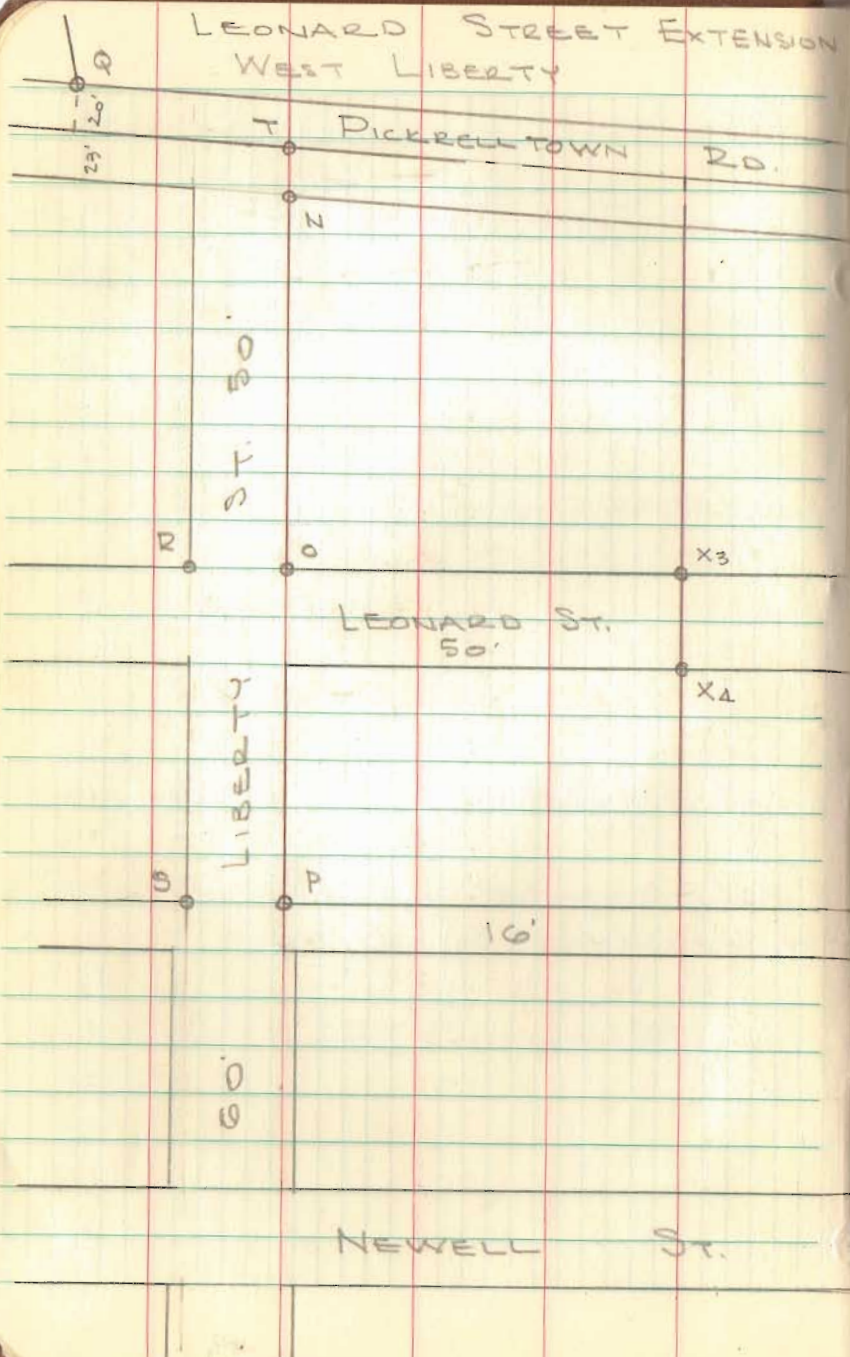 LEONARD STREET EXTENSION
WEST LIBERTY
Q
20'
23'
T
PICKRELLTOWN RD.
N
ST. 50'
R
O
X3
LEONARD ST.
50'
X4
LIBERTY
S
P
16'
60'
NEWELL ST.